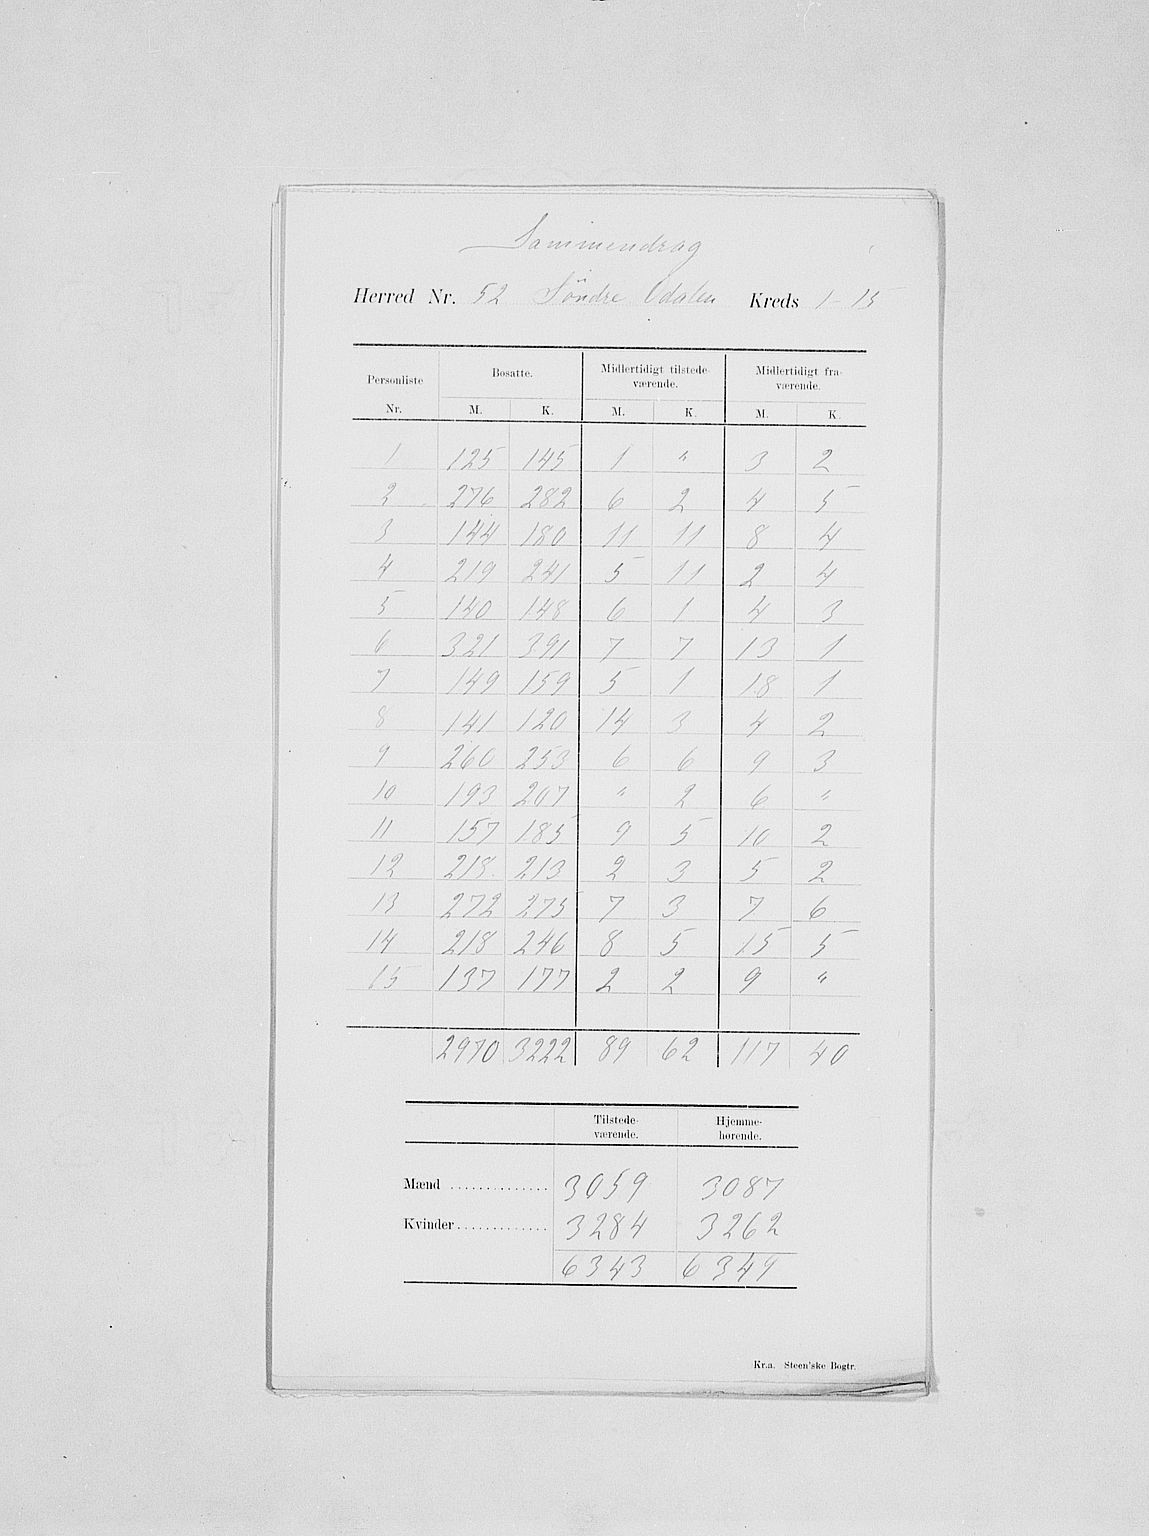 Sammendrag
Herred Nr. 52 Söndre Odalen Kreds 1-15
Personliste Nr. Bosatte. Midlertidigt tilstede- værende. Midlertidigt fra- værende.
M. K. M. K. M. K.
1 125 145 1 " 3 2
2 276 282 6 2 4 5
3 144 180 11 11 8 4
4 219 241 5 11 2 4
5 140 148 6 1 4 3
6 321 391 7 7 13 1
7 149 159 5 1 18 1
8 141 120 14 3 4 2
9 260 253 6 6 9 3
10 193 207 " 2 6 "
11 157 185 9 5 10 2
12 218 213 2 3 5 2
13 272 275 7 3 7 6
14 218 246 8 5 15 5
15 137 177 2 2 9 "
2970 3222 89 62 117 40
Tilstede- værende. Hjemme- hørende.
Mænd .............. 3059 3087
Kvinder ............. 3284 3262
6343 6349
Kr.a. Steen'ske Bogtr.